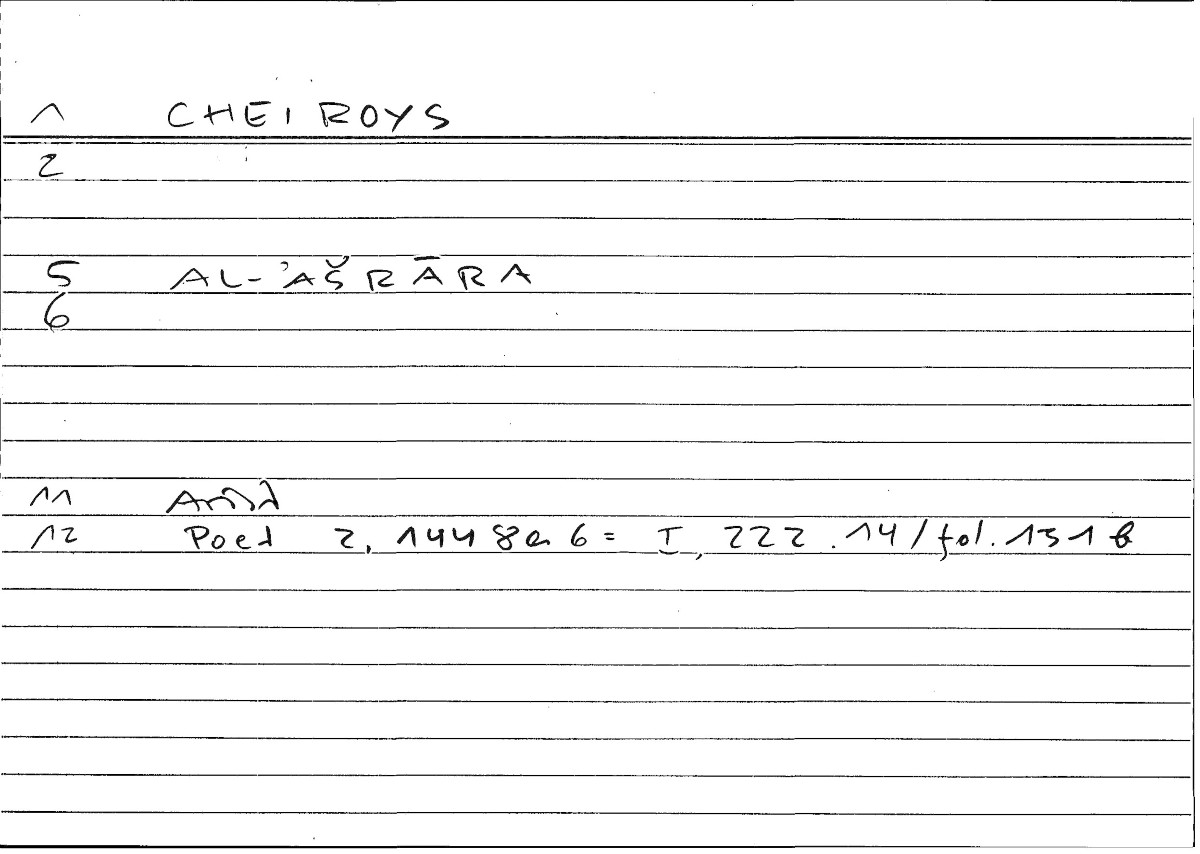 1 CHEIROYS
2
5 AL-ʾAŠRĀRA
6
11 Arist
12 Poet 2, 1448a 6 = I, 222.14/fol.131b